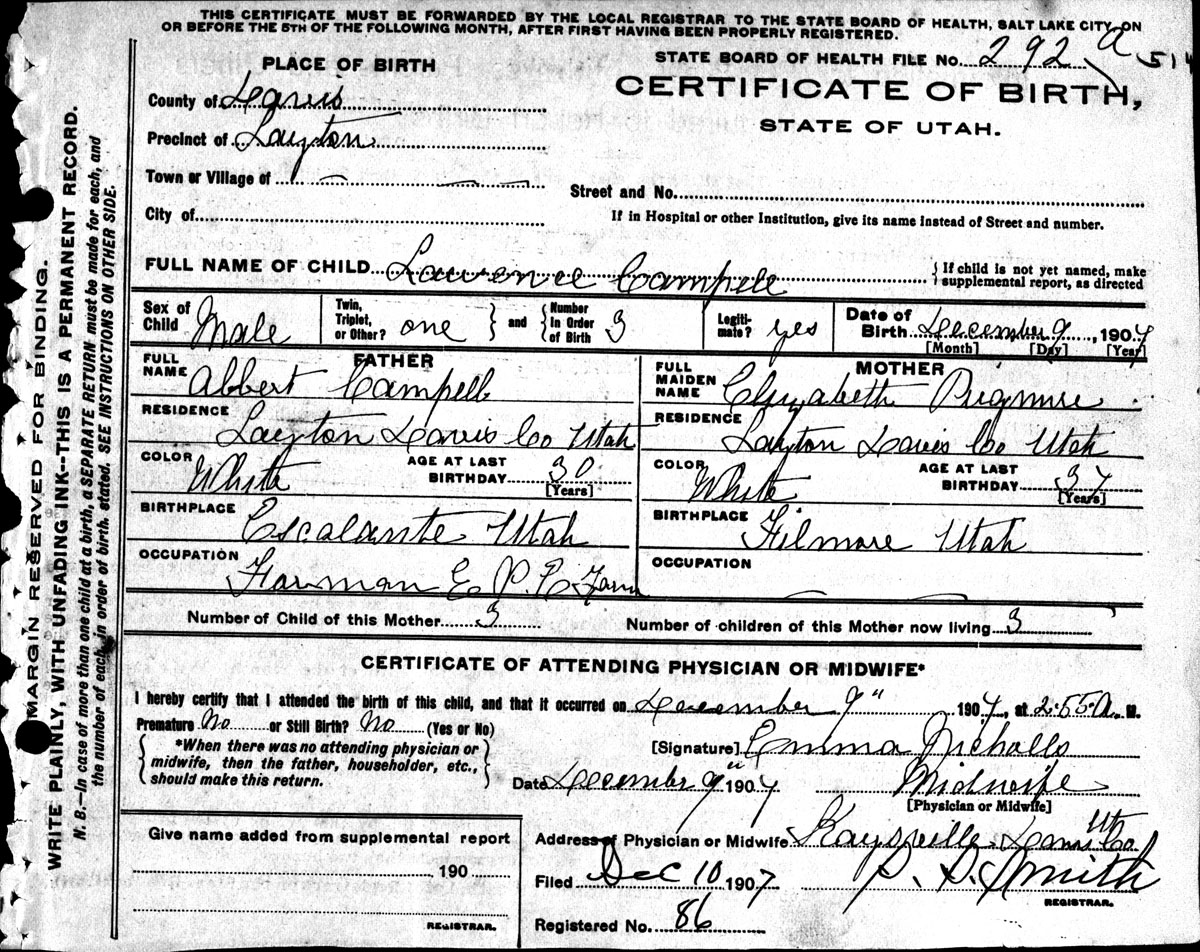 THIS CERTIFICATE MUST BE FORWARDED BY THE LOCAL REGISTRAR TO THE STATE BOARD OF HEALTH, SALT LAKE CITY, ON
OR BEFORE THE 5TH OF THE FOLLOWING MONTH, AFTER FIRST HAVING BEEN PROPERLY REGISTERED.
STATE BOARD OF HEALTH FILE No. 292 a
PLACE OF BIRTH
CERTIFICATE OF BIRTH,
STATE OF UTAH.
County of Davis
Precinct of Layton
Town or Village of — — —
Street and No.
City of
If in Hospital or other Institution, give its name instead of Street and number.
FULL NAME OF CHILD Lawrence Campell
{ If child is not yet named, make
supplemental report, as directed
Sex of Child Male
Twin, Triplet, or Other? one } and { Number in Order of Birth 3
Legitimate? yes
Date of Birth December 9, 1907
[Month] [Day] [Year]
FATHER
FULL NAME Abbert Campell
RESIDENCE
Layton Davis Co Utah
COLOR White
AGE AT LAST BIRTHDAY 30
[Years]
BIRTHPLACE
Escalante Utah
OCCUPATION
Farman E P. E Farm
MOTHER
FULL MAIDEN NAME Elizabeth Pugmire
RESIDENCE
Layton Davis Co Utah
COLOR White
AGE AT LAST BIRTHDAY 37
[Years]
BIRTHPLACE
Filmore Utah
OCCUPATION
— —
Number of Child of this Mother 3
Number of children of this Mother now living 3
CERTIFICATE OF ATTENDING PHYSICIAN OR MIDWIFE*
I hereby certify that I attended the birth of this child, and that it occurred on December 9" 1907, at 2.55 A. M.
Premature No or Still Birth? No (Yes or No)
{ *When there was no attending physician or
midwife, then the father, householder, etc.,
should make this return. }
[Signature] Emma Nicholls
Date December 9" 1907
Midwife
[Physician or Midwife]
Address of Physician or Midwife Kaysville Davis Co. Ut
Filed Dec 10 1907
P. D. Smith
REGISTRAR.
Registered No. 86
Give name added from supplemental report
190
REGISTRAR.
MARGIN RESERVED FOR BINDING.
WRITE PLAINLY, WITH UNFADING INK--THIS IS A PERMANENT RECORD.
N. B.—In case of more than one child at a birth, a SEPARATE RETURN must be made for each, and
the number of each, in order of birth, stated. SEE INSTRUCTIONS ON OTHER SIDE.